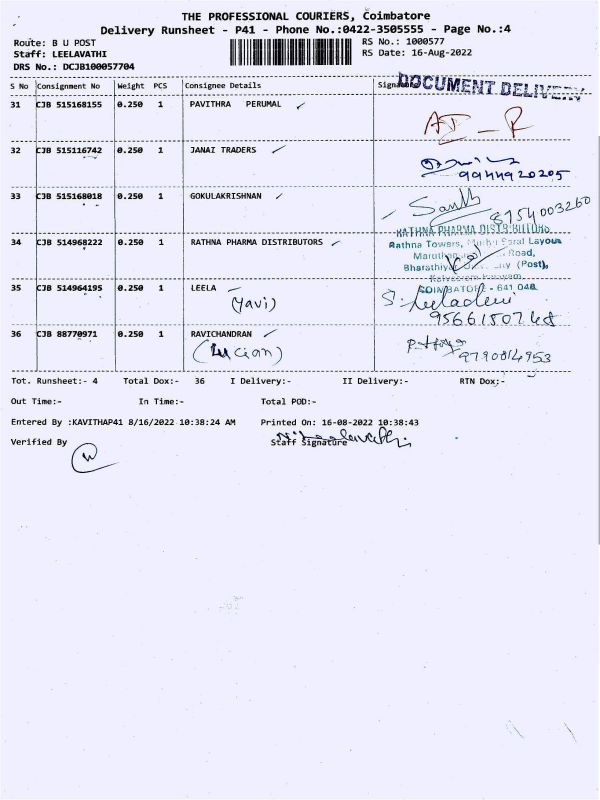 THE PROFESSIONAL COURIERS, Coimbatore
Delivery Runsheet - P41 - Phone No.:0422-3505555 - Page No.:4
Route: B U POST
RS No.: 1000577
Staff: LEELAVATHI
RS Date: 16-Aug-2022
DRS No.: DCJB100057704
S No Consignment No Weight PCS Consignee Details Signature
DOCUMENT DELIVERY
31 CJB 515168155 0.250 1 PAVITHRA PERUMAL
32 CJB 515116742 0.250 1 JANAI TRADERS
9944920205
33 CJB 515168018 0.250 1 GOKULAKRISHNAN
8754003260
RATHNA PHARMA DISTRIBUTORS
34 CJB 514968222 0.250 1 RATHNA PHARMA DISTRIBUTORS
Rathna Towers, Layout
Road,
(Post),
COIMBATORE - 641 046
35 CJB 514964195 0.250 1 LEELA
(Yavi)
S. Leeladevi
9566150748
36 CJB 88770971 0.250 1 RAVICHANDRAN
9790014953
Tot. Runsheet:- 4 Total Dox:- 36 I Delivery:- II Delivery:- RTN Dox:-
Out Time:- In Time:- Total POD:-
Entered By :KAVITHAP41 8/16/2022 10:38:24 AM Printed On: 16-08-2022 10:38:43
Verified By Staff Signature